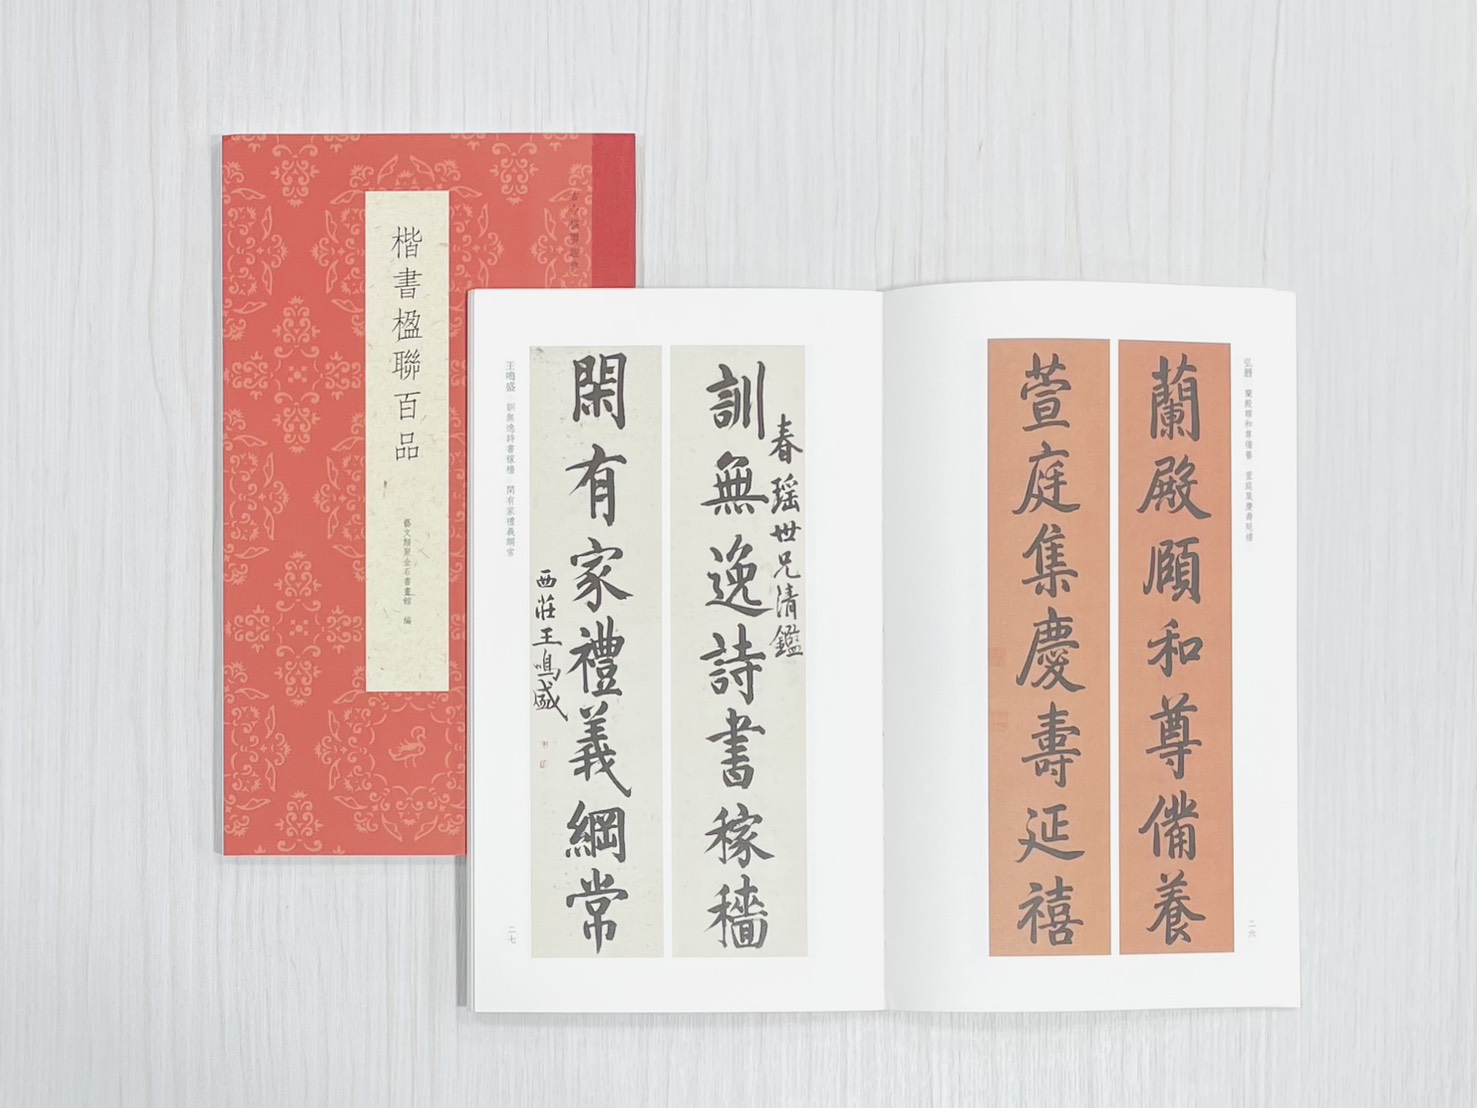 楷書楹聯百品
藝文類聚金石書畫館 編
弘曆 蘭殿頤和尊備養 萱庭集慶壽延禧
蘭殿頤和尊備養
萱庭集慶壽延禧
二六
春瑶世兄清鑑
訓無逸詩書稼穡
閑有家禮義綱常
西莊王鳴盛
王鳴盛 訓無逸詩書稼穡 閑有家禮義綱常
二七